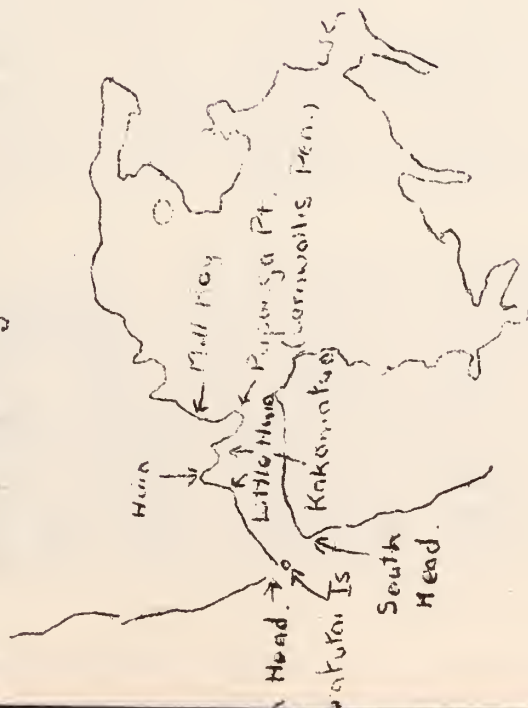 Huia
Mill Bay
Puponga Pt.
(Cornwallis Pen.)
Little Huia
Kakamatua
Head.
ratutai Is
South
Head.